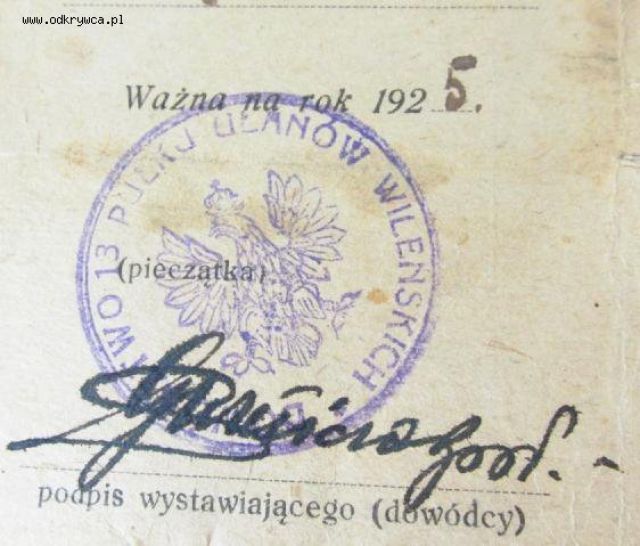 www.odkrywca.pl
Ważna na rok 1925.
WO 13 PUŁKU UŁANÓW WILEŃSKICH
(pieczątka)
podpis wystawiającego (dowódcy)